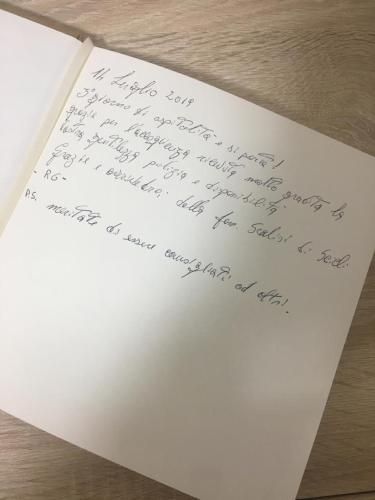 14 Luglio 2019
3° giorno di ospitalità e si parte!
grazie per l'accoglienza ricevuta molto gradita la
vostra gentilezza pulizia e disponibilità
Grazie e arrivederci dalla fam Scalisi di
- RG -
P.S. meritate di essere consigliati ad altri.